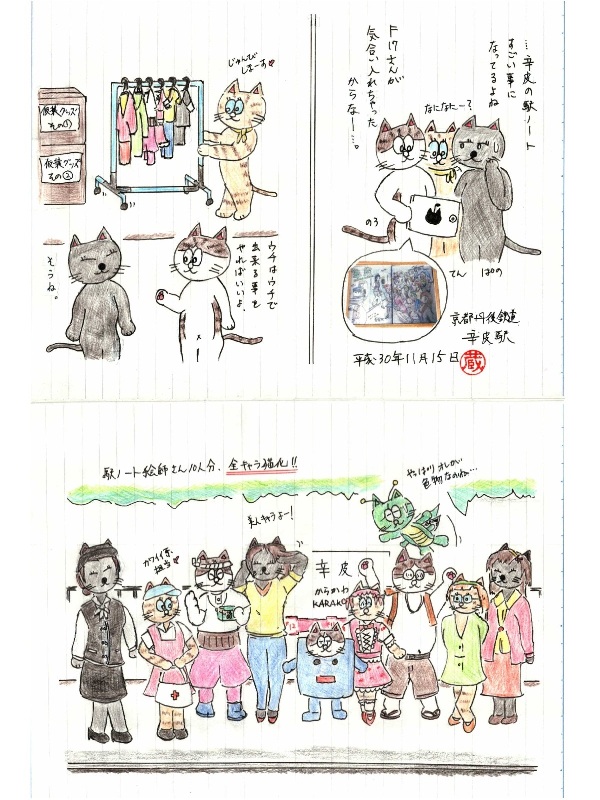 …辛皮の駅ノート
すごい事に
なってるよね
ドドさんが
気合い入れちゃった
からなー…。
なになにー?
のろ
てん
ぱの
京都丹後鉄道
辛皮駅
平成30年11月15日
蔵
じゅんび
しまーす♥
仮装グッズ
その①
仮装グッズ
その②
ウチはウチで
出来る事を
やればいいよ。
そうね。
駅ノート絵師さん10人分、全キャラ猫化!!
カワイイ系
担当♥
美人キャラよー!
やっぱりオレが
色物なのね…
辛皮
からかわ
KARAKA